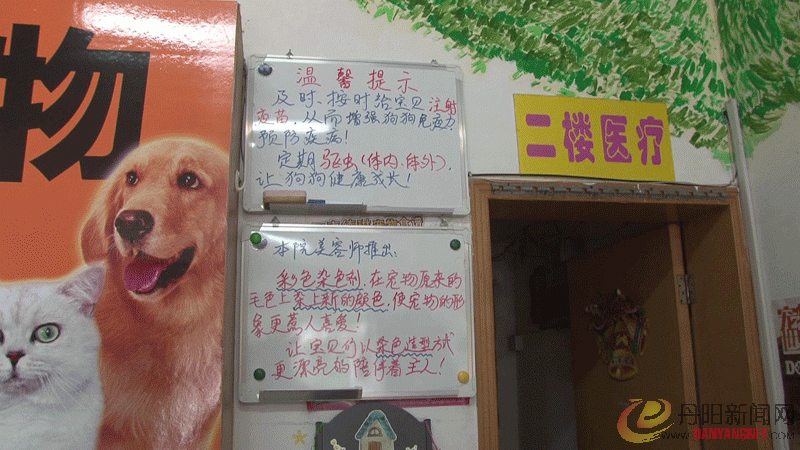 物
温馨提示
及时、按时给宝贝注射
疫苗,从而增强狗狗免疫力
预防疾病!
定期驱虫(体内、体外),
让狗狗健康成长!
二楼医疗
本院美容师推出:
彩色染色剂,在宠物原来的
毛色上染上新的颜色,使宠物的形
象更惹人喜爱!
让宝贝们以染色造型方式
更漂亮的陪伴着主人!
丹阳新闻网
www.DANYANGNET.com